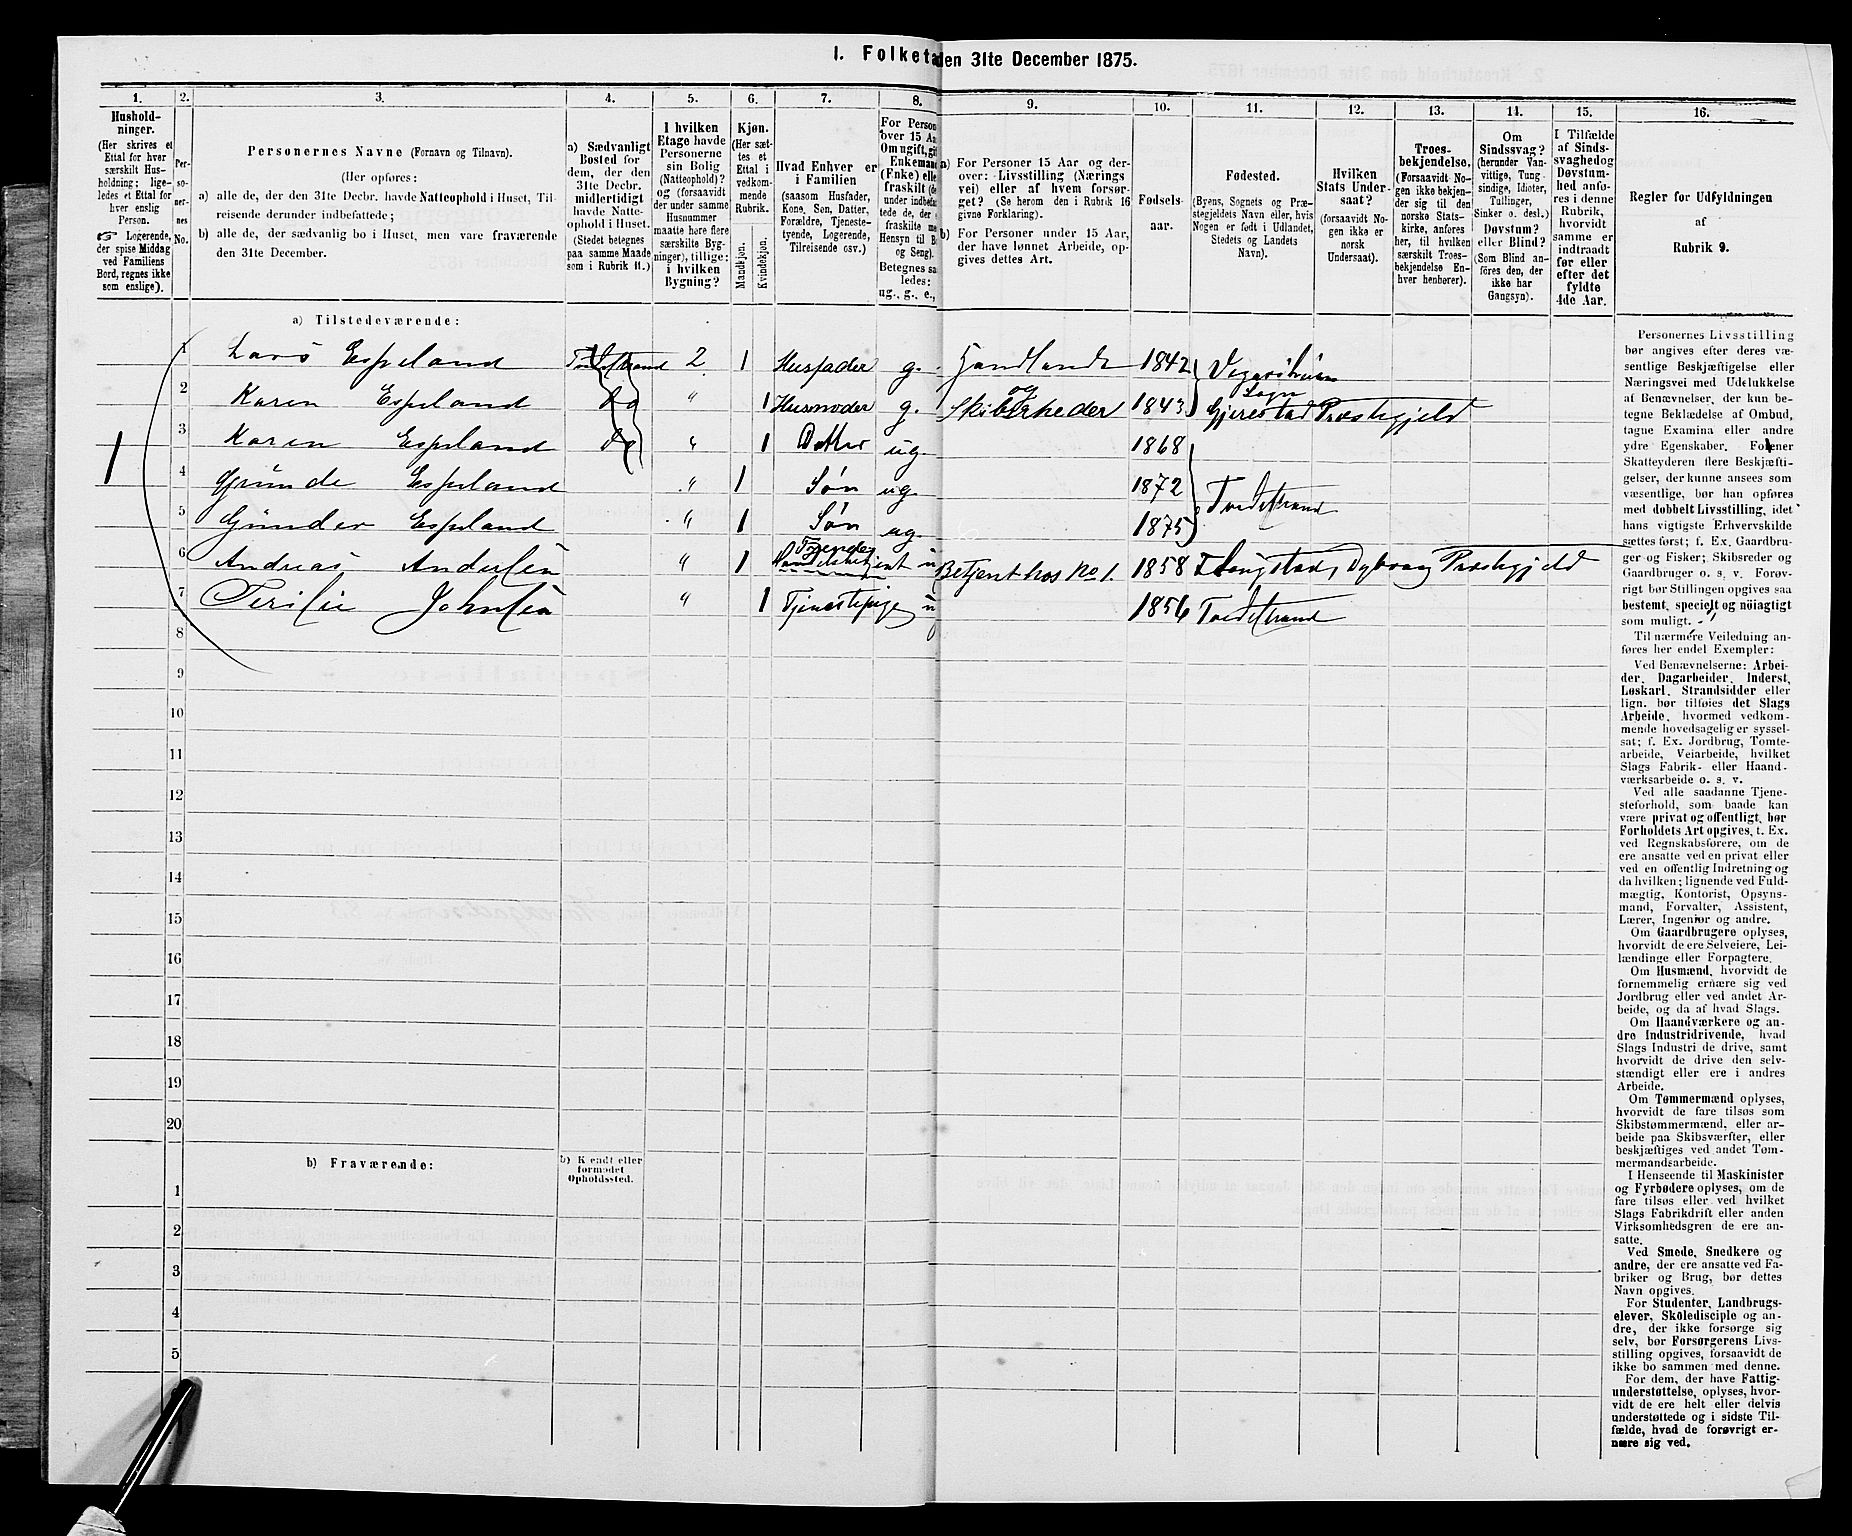 1. Folketæ den 31te December 1875.
1. 2. 3. 4. 5. 6. 7. 8. 9. 10. 11. 12. 13. 14. 15. 16.
Hushold-
ninger.
(Her skrives et
Ettal for hver
særskilt Hus-
holdning; lige-
ledes et Ettal for
hver enslig
Person.
☞ Logerende,
der spise Middag
ved Familiens
Bord, regnes ikke
som enslige).
Per-
so-
ner-
nes
No.
Personernes Navne (Fornavn og Tilnavn).
(Her opføres:
a) alle de, der den 31te Decbr. havde Natteophold i Huset, Til-
reisende derunder indbefattede;
b) alle de, der sædvanlig bo i Huset, men vare fraværende
den 31te December.
a) Sædvanligt
Bosted for
dem, der den
31te Decbr.
midlertidigt
havde Natte-
ophold i Huset.
(Stedet betegnes
paa samme Maade
som i Rubrik 11.)
I hvilken
Etage havde
Personerne
sin Bolig
(Natteophold)?
og (forsaavidt
der under samme
Husnummer
maatte høre flere
særskilte Byg-
ninger), tillige:
i hvilken
Bygning?
Kjøn.
(Her sæt-
tes et
Ettal i
vedkom-
mende
Rubrik.
Mandkjøn.
Kvindekjøn.
Hvad Enhver er
i Familien
(saasom Husfader,
Kone, Søn, Datter,
Forældre, Tjeneste-
tyende, Logerende,
Tilreisende osv.)
For Person
over 15 Aa
Om ugift, gif
Enkemand
(Enke) elle
fraskilt (de
under indbefat
tede de, der e
fraskilte me
Hensyn til B
og Seng).
Betegnes saa
ledes:
ug., g., e.,
a) For Personer 15 Aar og der-
over: Livsstilling (Nærings
vei) eller af hvem forsør-
get? (Se herom den i Rubrik 16
givne Forklaring).
b) For Personer under 15 Aar,
der have lønnet Arbeide, op-
gives dettes Art.
Fødsels-
aar.
Fødested.
(Byens, Sognets og Præ-
stegjeldets Navn eller, hvis
Nogen er født i Udlandet,
Stedets og Landets
Navn).
Hvilken
Stats Under-
saat?
(forsaavidt No-
gen ikke er
norsk
Undersaat).
Troes-
bekjendelse.
(Forsaavidt No-
gen ikke bekjen-
der sig til den
norske Stats-
kirke, anføres
her, til hvilken
særskilt Troes-
bekjendelse En-
hver henhører).
Om
Sindssvag?
(herunder Van-
vittige, Tung-
sindige, Idioter,
Tullinger,
Sinker o. desl.)
Døvstum?
eller Blind?
(Som Blind an-
føres den, der
ikke har
Gangsyn).
I Tilfælde
af Sinds-
svaghed og
Døvstum-
hed anfø-
res i denne
Rubrik,
hvorvidt
samme er
indtraadt
før eller
efter det
fyldte
4de Aar.
Regler for Udfyldningen
af
Rubrik 9.
a) Tilstedeværende:
1 Lars Espeland Tvedestrand 2 1 Husfader g. Handlende 1842 Vegarsheien
2 Karen Espeland do " 1 Husmoder g. og Skibsrheder 1843 Sogn Gjerestad Præstegjeld
1
3 Karen Espland do " 1 Datter ug. 1868
4 Gründe Espeland " 1 Søn ug. 1872 Tvedestrand
5 Günder Espeland " 1 Søn ug. 1875
6 Andreas Andersen " 1 Tyende Handelsbetjent u Betjent hos No 1. 1858 Flangstad, Dybvaag Præstegjeld
7 Terilie Johnsen " 1 Tjenestepige u 1856 Tvedestrand
8
9
10
11
12
13
14
15
16
17
18
19
20
b) Fraværende:
b) Kjendt eller
formodet
Opholdssted.
1
2
3
4
5
Personernes Livsstilling
bør angives efter deres væ-
sentlige Beskjæftigelse eller
Næringsvei med Udelukkelse
af Benævnelser, der kun be-
tegne Beklædelse af Ombud,
tagne Examina eller andre
ydre Egenskaber. Forener
Skatteyderen flere Beskjæfti-
gelser, der kunne ansees som
væsentlige, bør han opføres
med dobbelt Livsstilling, idet
hans vigtigste Erhvervskilde
sættes først; f. Ex. Gaardbru-
ger og Fisker; Skibsreder og
Gaardbruger o. s. v. Forøv-
rigt bør Stillingen opgives saa
bestemt, specielt og nöiagtigt
som muligt.
Til nærmere Veiledning an-
føres her endel Exempler:
Ved Benævnelserne: Arbei-
der, Dagarbeider, Inderst,
Løskarl, Strandsidder eller
lign. bør tilføies det Slags
Arbeide, hvormed vedkom-
mende hovedsagelig er syssel-
sat; f. Ex. Jordbrug, Tomte-
arbeide, Veiarbeide, hvilket
Slags Fabrik- eller Haand-
værksarbeide o. s. v.
Ved alle saadanne Tjene-
steforhold, som baade kan
være privat og offentligt, bør
Forholdets Art opgives, t. Ex.
ved Regnskabsførere, om de
ere ansatte ved en privat eller
ved en offentlig Indretning og
da hvilken; lignende ved Fuld-
mægtig, Kontorist, Opsyns-
mand, Forvalter, Assistent,
Lærer, Ingeniør og andre.
Om Gaardbrugere oplyses,
hvorvidt de ere Selveiere, Lei-
lændinge eller Forpagtere.
Om Husmænd, hvorvidt de
fornemmelig ernære sig ved
Jordbrug eller ved andet Ar-
beide, og da af hvad Slags.
Om Haandværkere og an-
dre Industridrivende, hvad
Slags Industri de drive, samt
hvorvidt de drive den selv-
stændigt eller ere i andres
Arbeide.
Om Tømmermænd oplyses,
hvorvidt de fare tilsøs som
Skibstømmermænd, eller ar-
beide paa Skibsværfter, eller
beskjæftiges ved andet Tøm-
mermandsarbeide.
I Henseende til Maskinister
og Fyrbødere oplyses, om de
fare tilsøs eller ved hvilket
Slags Fabrikdrift eller anden
Virksomhedsgren de ere an-
satte.
Ved Smede, Snedkere og
andre, der ere ansatte ved Fa-
briker og Brug, bør dettes
Navn opgives.
For Studenter, Landbrugs-
elever, Skoledisciple og an-
dre, der ikke forsørge sig
selv, bør Forsørgerens Livs-
stilling opgives, forsaavidt de
ikke bo sammen med denne.
For dem, der have Fattig-
understøttelse, oplyses, hvor-
vidt de ere helt eller delvis
understøttede og i sidste Til-
fælde, hvad de forøvrigt er-
nære sig ved.